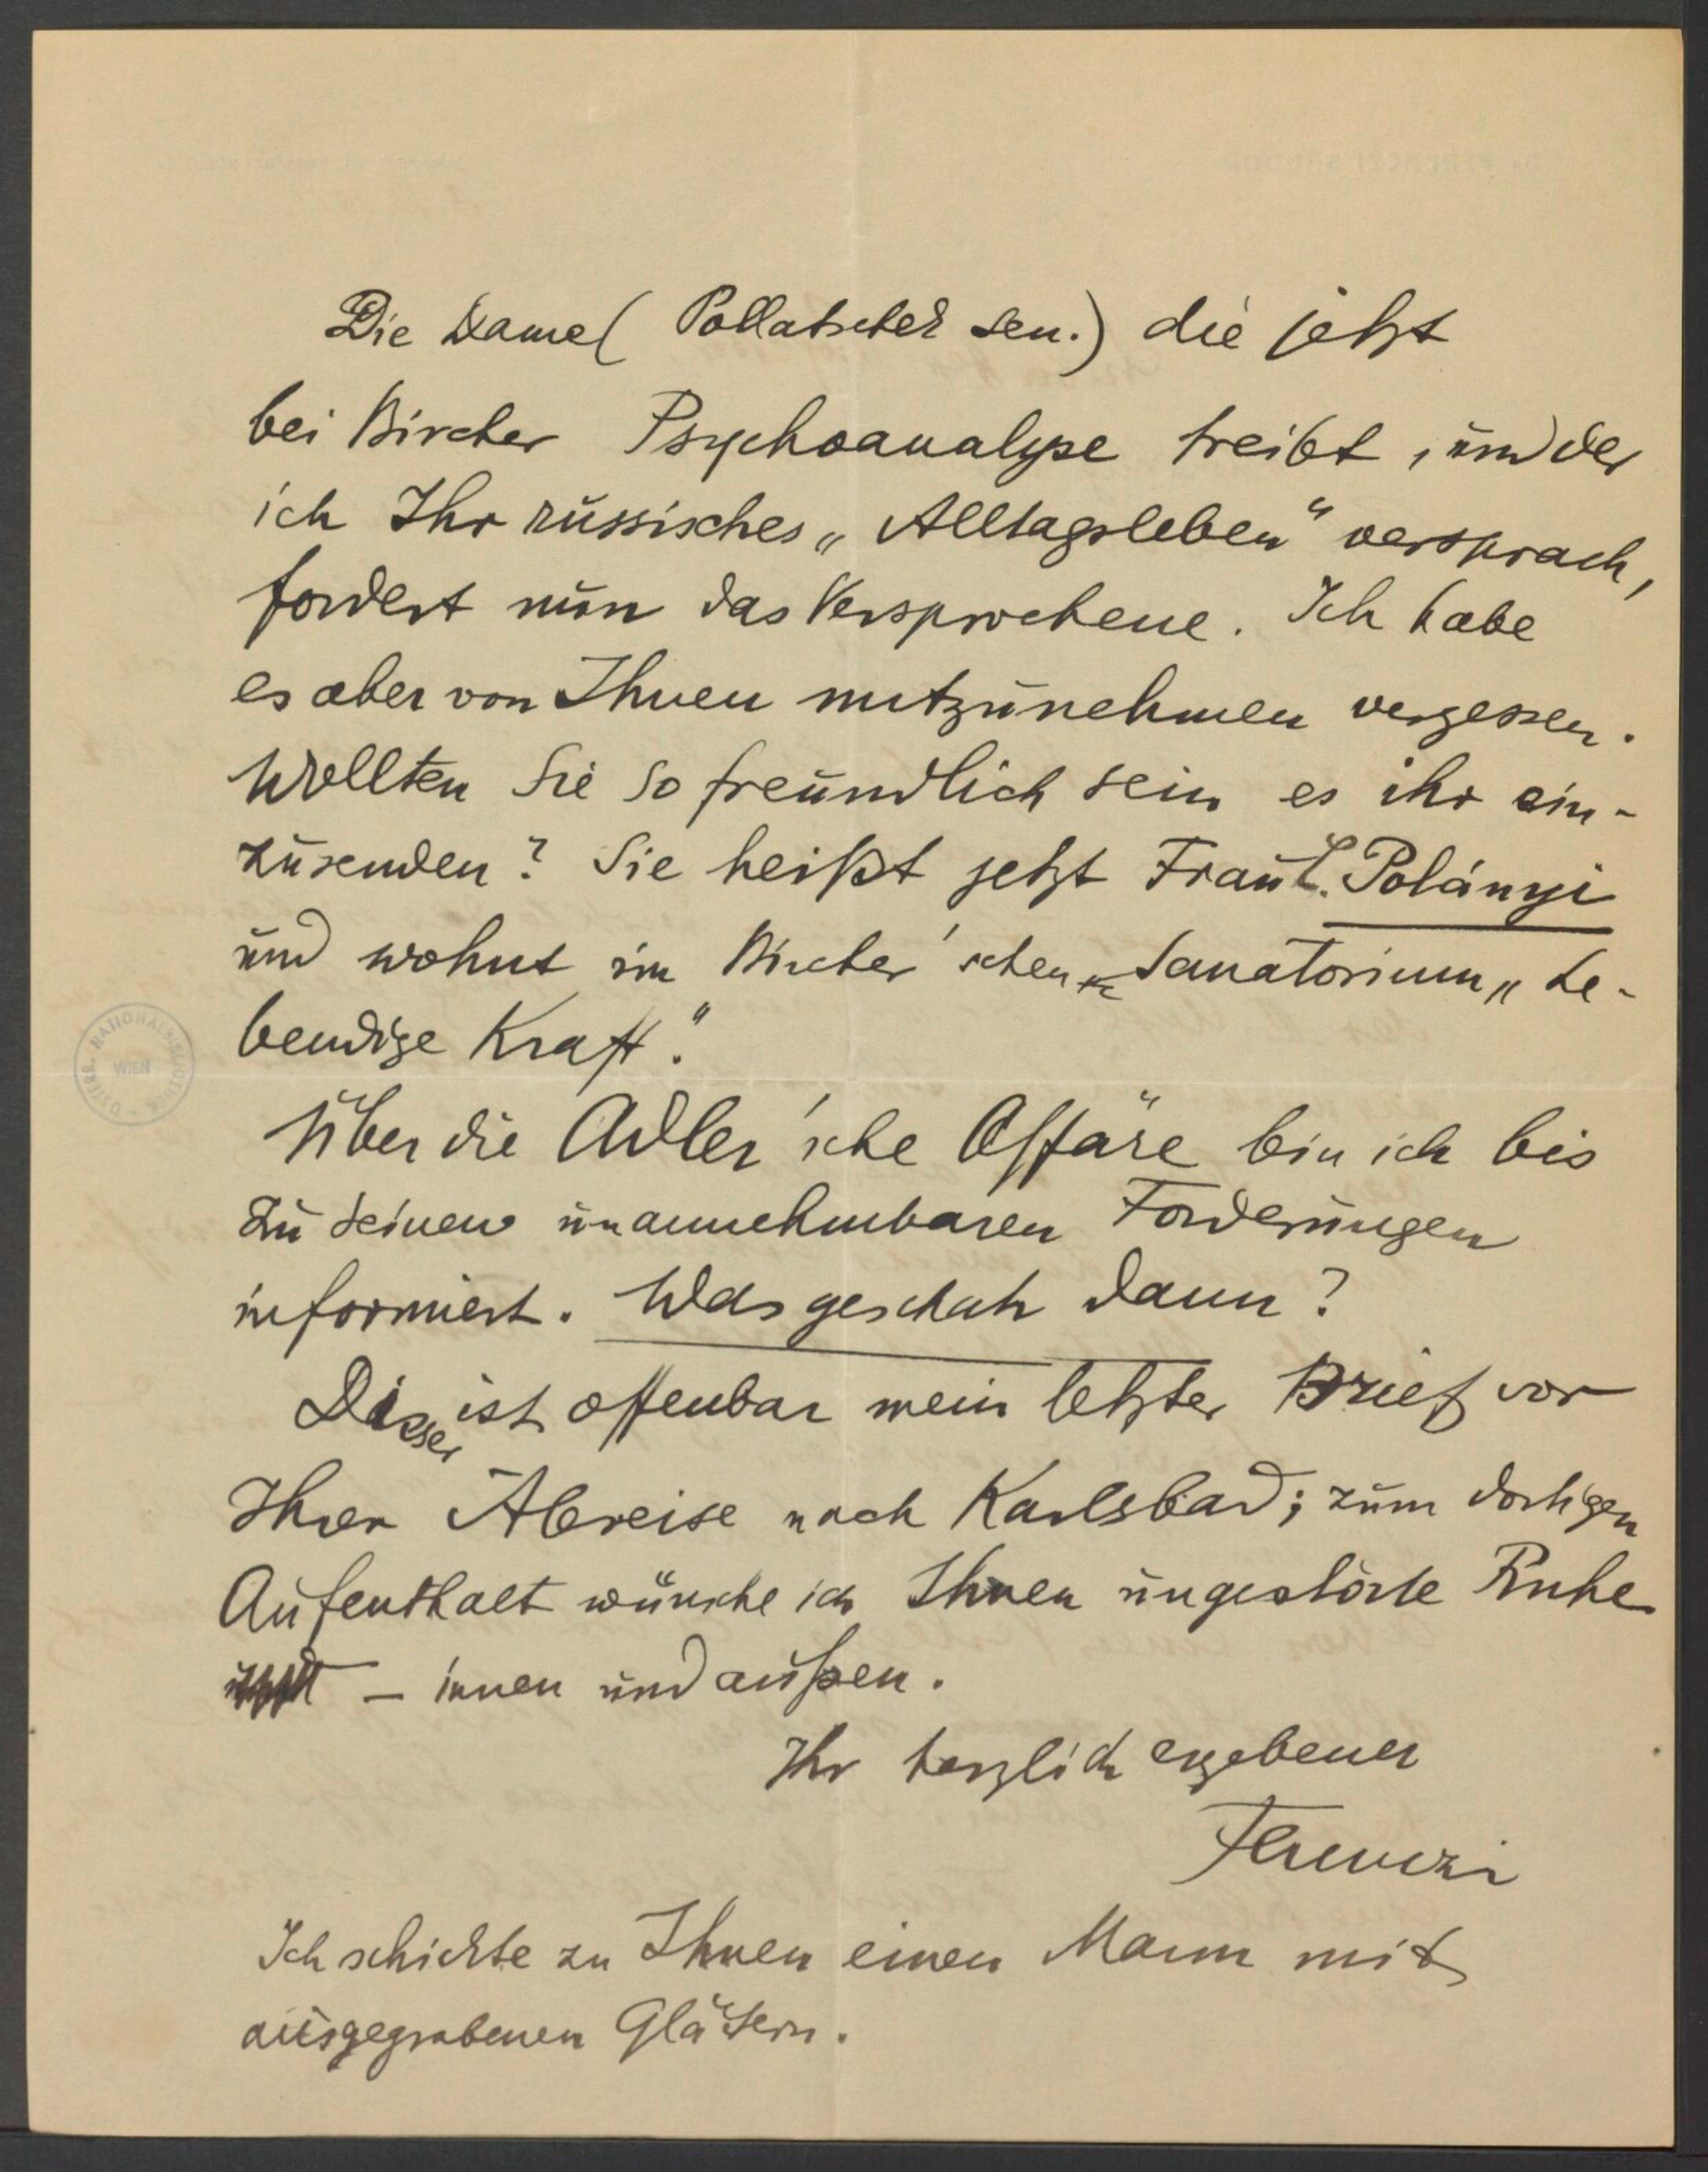 Die Dame (Pollatschek sen.) die jetzt
bei Bircher Psychoanalyse treibt, und der
ich Ihr russisches „Alltagsleben“ versprach,
fordert nun das Versprochene. Ich habe
es aber von Ihnen mitzunehmen vergessen.
Wollten Sie so freundlich sein es ihr ein-
zusenden? Sie heißt jetzt Frau L. Polányi
und wohnt im Bircher'schen Sanatorium „Le-
bendige Kraft.“
Über die Adler'sche Affäre bin ich bis
zu seinen unannehmbaren Forderungen
informiert. Was geschah dann?
Dieser ist offenbar mein letzter Brief vor
Ihrer Abreise nach Karlsbad; zum dortigen
Aufenthalt wünsche ich Ihnen ungestörte Ruhe
– innen und außen.
Ihr herzlich ergebener
Ferenczi
Ich schickte zu Ihnen einen Mann mit
ausgegrabenen Gläsern.
ÖSTERR. NATIONALBIBLIOTHEK
WIEN